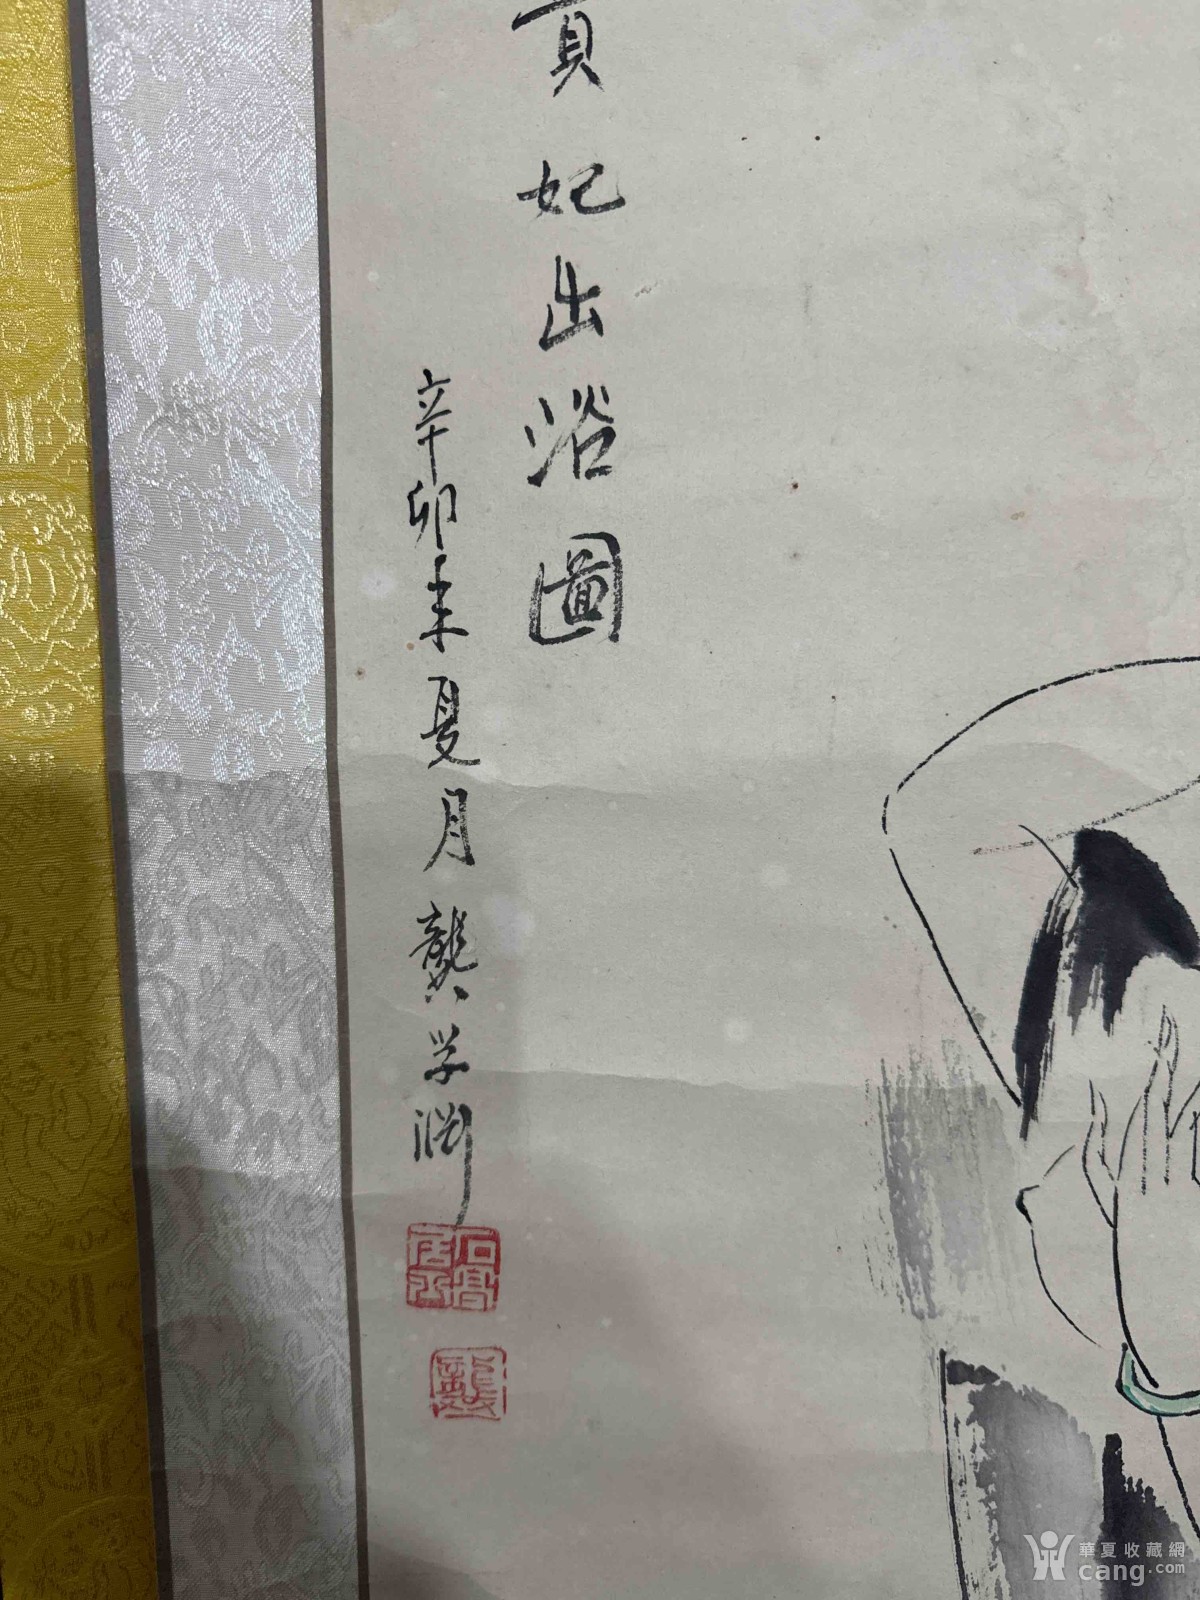 貴妃出浴圖
辛卯年夏月龔学渊
華夏收藏網
cang.com